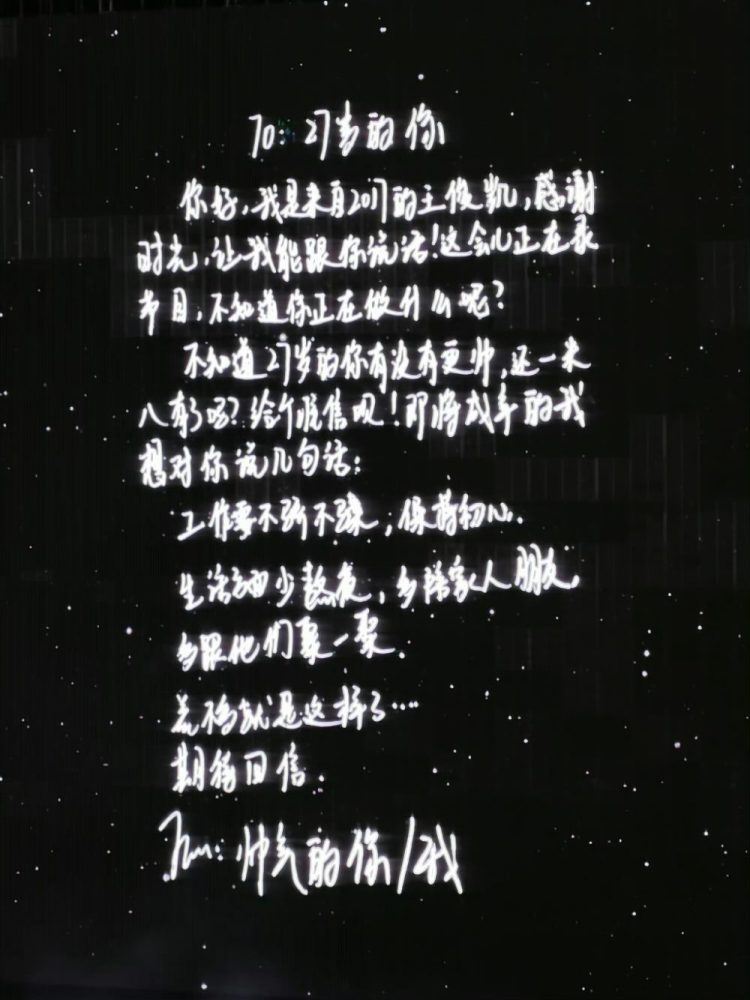 To: 27岁的你
你好,我是来自2017的王俊凯,感谢
时光,让我能跟你说话!这会儿正在录
节目,不知道你正在做什么呢?
不知道27岁的你有没有更帅,还一米
八有了吗?给个准信呗!即将成年的我
想对你说几句话:
工作要不骄不躁,保持初心.
生活方面少熬夜,多陪家人朋友,
多跟他们聚一聚.
差不多就是这样了····
期待回信.
From:帅气的你/我